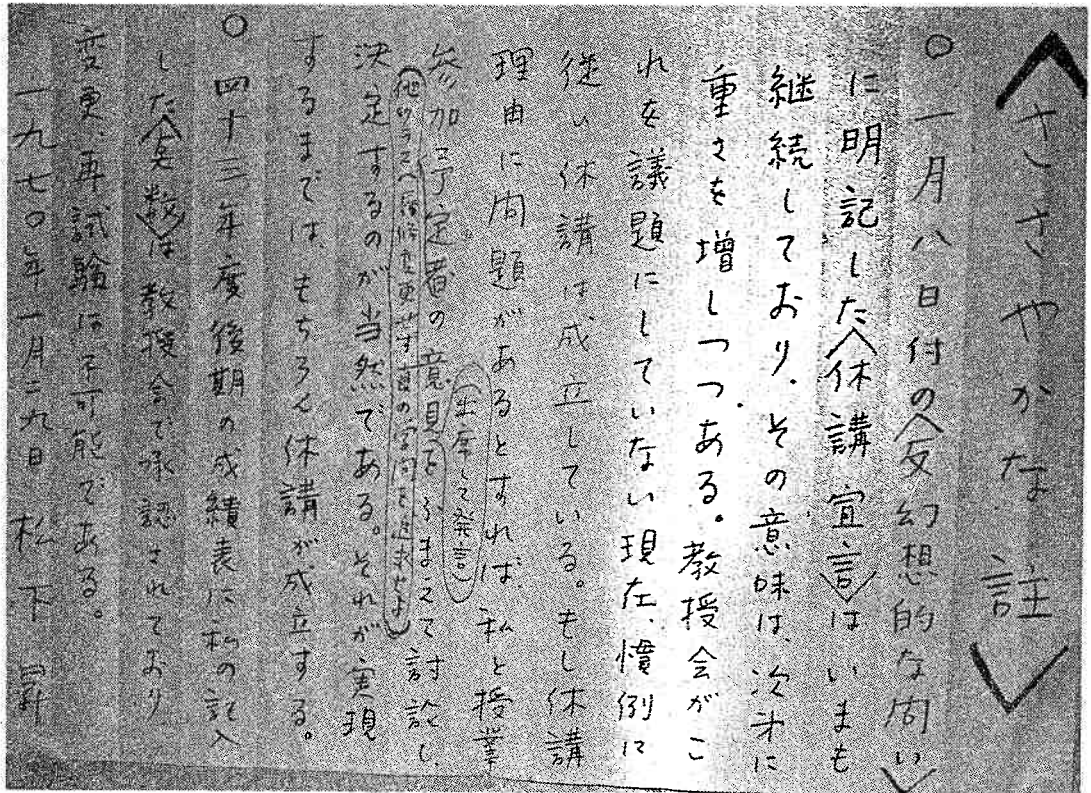 〈ささやかな註〉
○一月八日付の〈反幻想的な問い〉
に明記した〈休講宣言〉はいまも
継続しており、その意味は、次才に
重さを増しつつある。教授会がこ
れを議題にしていない現在、慣例に
従い休講は成立している。もし休講
理由に問題があるとすれば、私と授業
(出席して発言)
参加予定者の意見をふまえて討論し、
決定するのが当然である。それが実現
するまでは、もちろん休講が成立する。
○四十三年度後期の成績表に私の記入
した〈点数〉は教授会で承認されており
変更、再試験は不可能である。
一九七〇年一月二九日 松下 昇